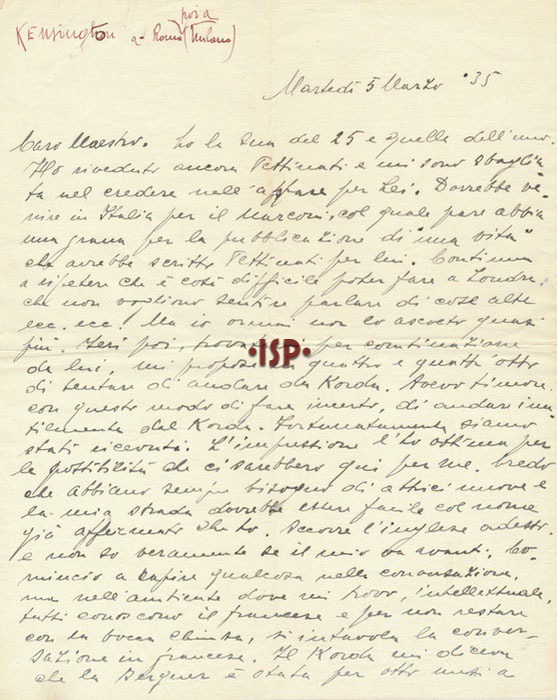 poi a
Kensington a Roma (Milano)
Martedì 5 Marzo '35
Caro Maestro. Ho la sua del 25 e quella dell'uno.
Ho riveduto ancora Pettinati e mi sono sbaglia
ta nel credere nell'affare per Lei. Dovrebbe ve-
nire in Italia per il Marconi, col quale pare abbia
una grana per la pubblicazione di "una vita"
che avrebbe scritto Pettinati per lui. Continua
a ripetere che è così difficile poter fare a Londra,
che non vogliono sentire parlare di cose alte
ecc. ecc! Ma io ormai non lo ascolto quasi
più. Ieri poi, per combinazione
da lui, mi propose quattro e quattr'otto
di tentare di andare da Korda. Avevo timore,
con questo modo di fare incerto, di andare inu-
tilmente dal Korda. Fortunatamente siamo
stati ricevuti. L'impressione l'ho ottima per
le possibilità che ci sarebbero qui per me. Credo
che abbiano sempre bisogno di attrici nuove e
la mia strada dovrebbe essere facile col nome
già affermato che ho. Occorre l'inglese adesso.
e non so veramente se il mio va avanti. Co-
mincio a capire qualcosa nella conversazione,
ma nell'ambiente dove mi trovo, intellettuale,
tutti conoscono il francese e per non restare
con la bocca chiusa, si intavola la conver-
sazione in francese. Il Korda mi diceva
che la Bergner è stata per otto mesi a
•ISP•